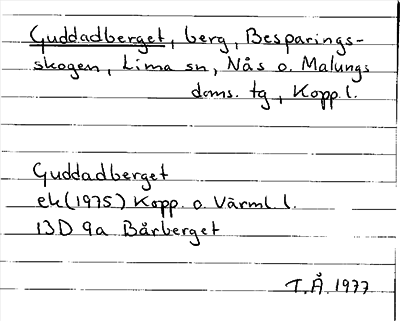 Guddadberget, berg, Besparings-
skogen, Lima sn, Nås o. Malungs
doms. tg, Kopp. l.
Guddadberget
ek (1975) Kopp. o. Värml. l.
13D 9a Bårberget
T.Å. 1977